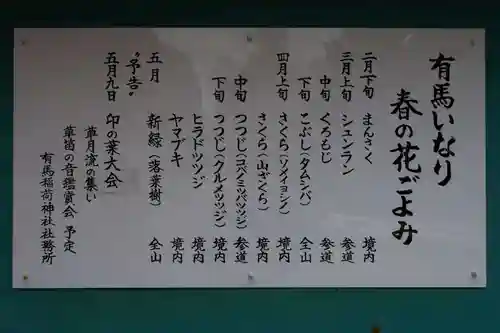 有馬いなり
春の花ごよみ
二月下旬 まんさく 境内
三月上旬 シュンラン 参道
中旬 くろもじ 参道
下旬 こぶし(タムシバ) 全山
四月上旬 さくら(ソメイヨシノ) 境内
さくら(山ざくら) 境内
中旬 つつじ(コバノミツバツツジ) 参道
下旬 つつじ(クルメツツジ) 境内
ヒラドツツジ 境内
ヤマブキ 境内
五月 新緑(落葉樹) 全山
〝予告〟
五月九日 印の葉大会
草月流の集い
草笛の音鑑賞会 予定
有馬稲荷神社社務所